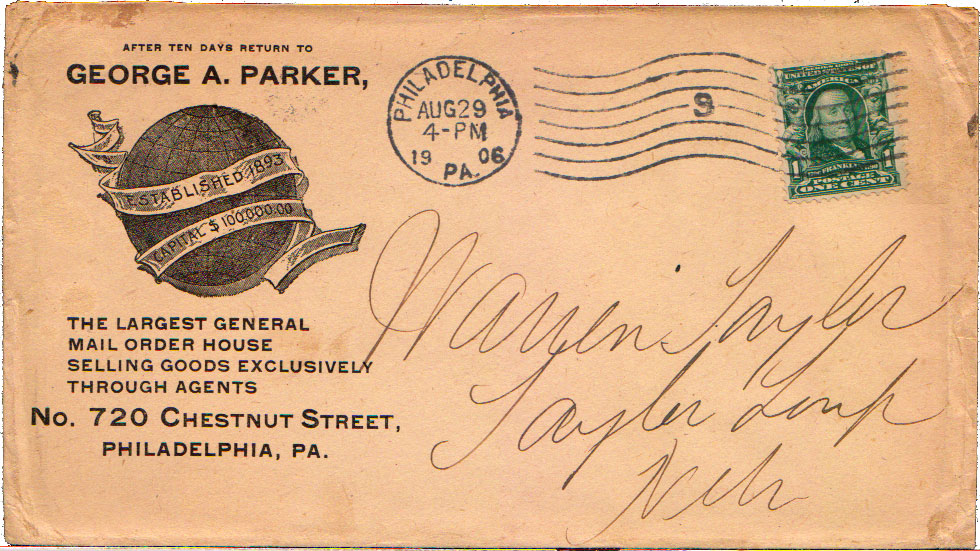 AFTER TEN DAYS RETURN TO
GEORGE A. PARKER,
ESTABLISHED 1893
CAPITAL $100,000.00
THE LARGEST GENERAL
MAIL ORDER HOUSE
SELLING GOODS EXCLUSIVELY
THROUGH AGENTS
No. 720 CHESTNUT STREET,
PHILADELPHIA, PA.
PHILADELPHIA
AUG 29
4-PM
19 06
PA.
9
UNITED STATES OF
AMERICA
1 FRANKLIN 1
POSTAGE
ONE CENT
Warren Taylor
Taylor Loup
Nebr